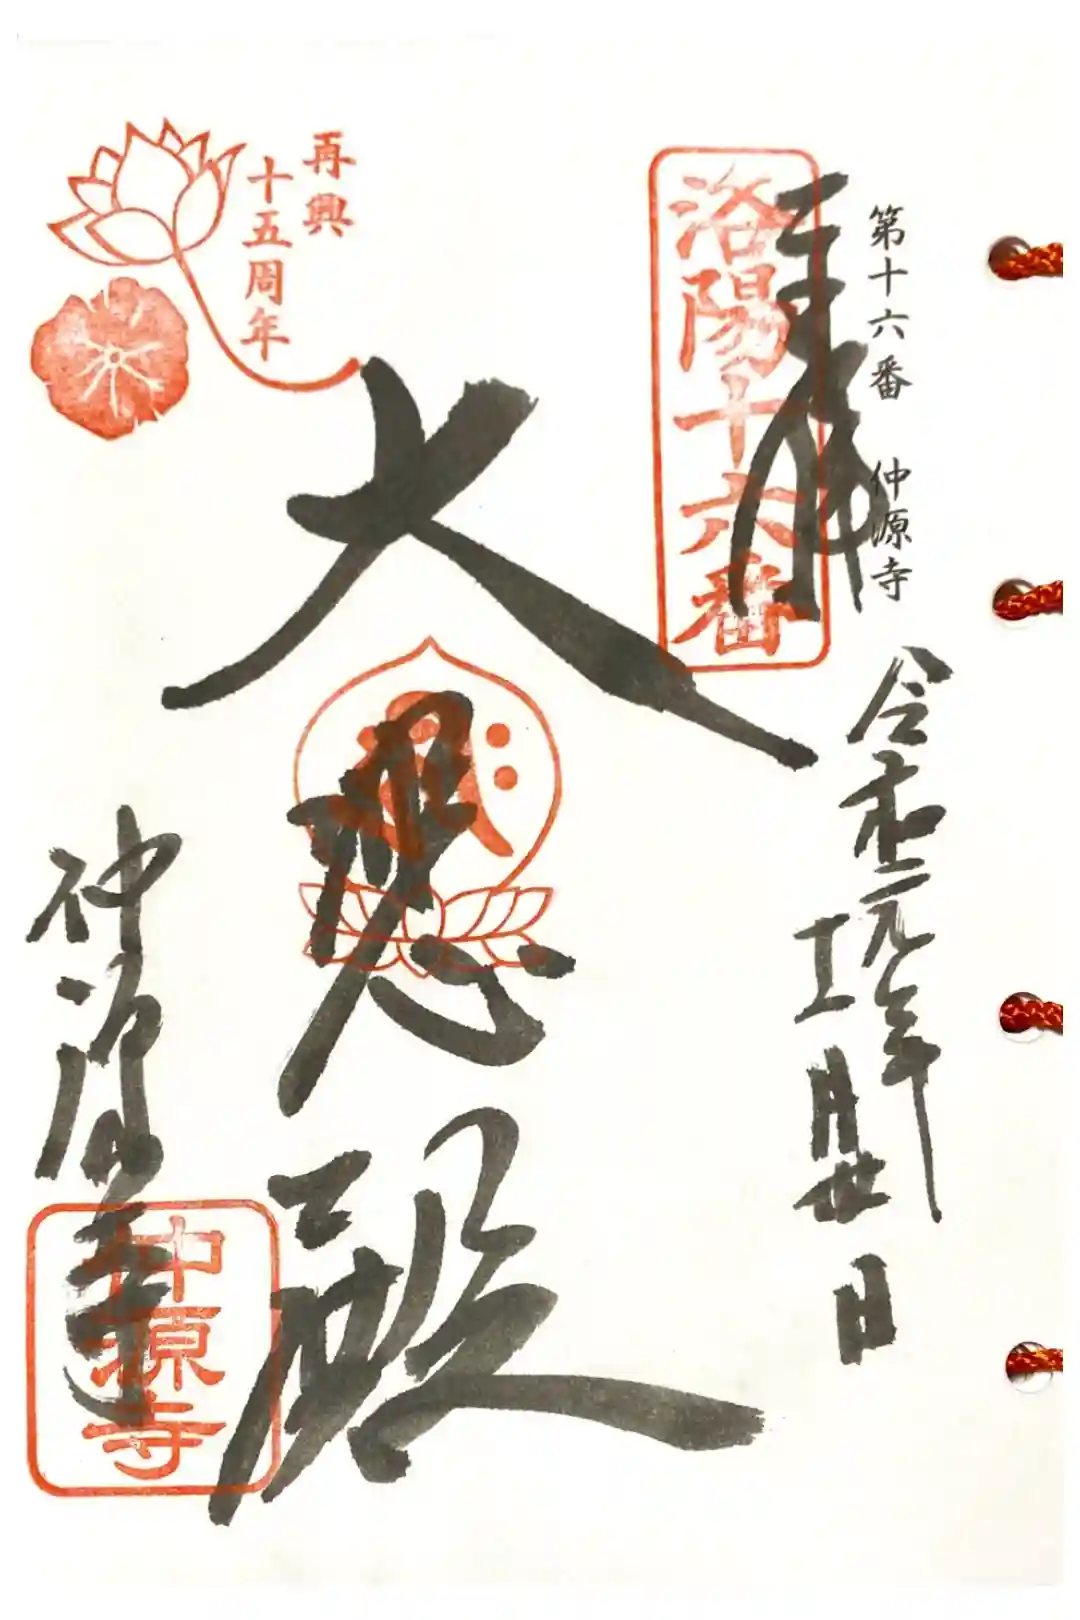 第十六番 仲源寺
奉拝
洛陽十六番
令和元年
五月廿日
大悲殿
再興
十五周年
仲源寺
仲源寺